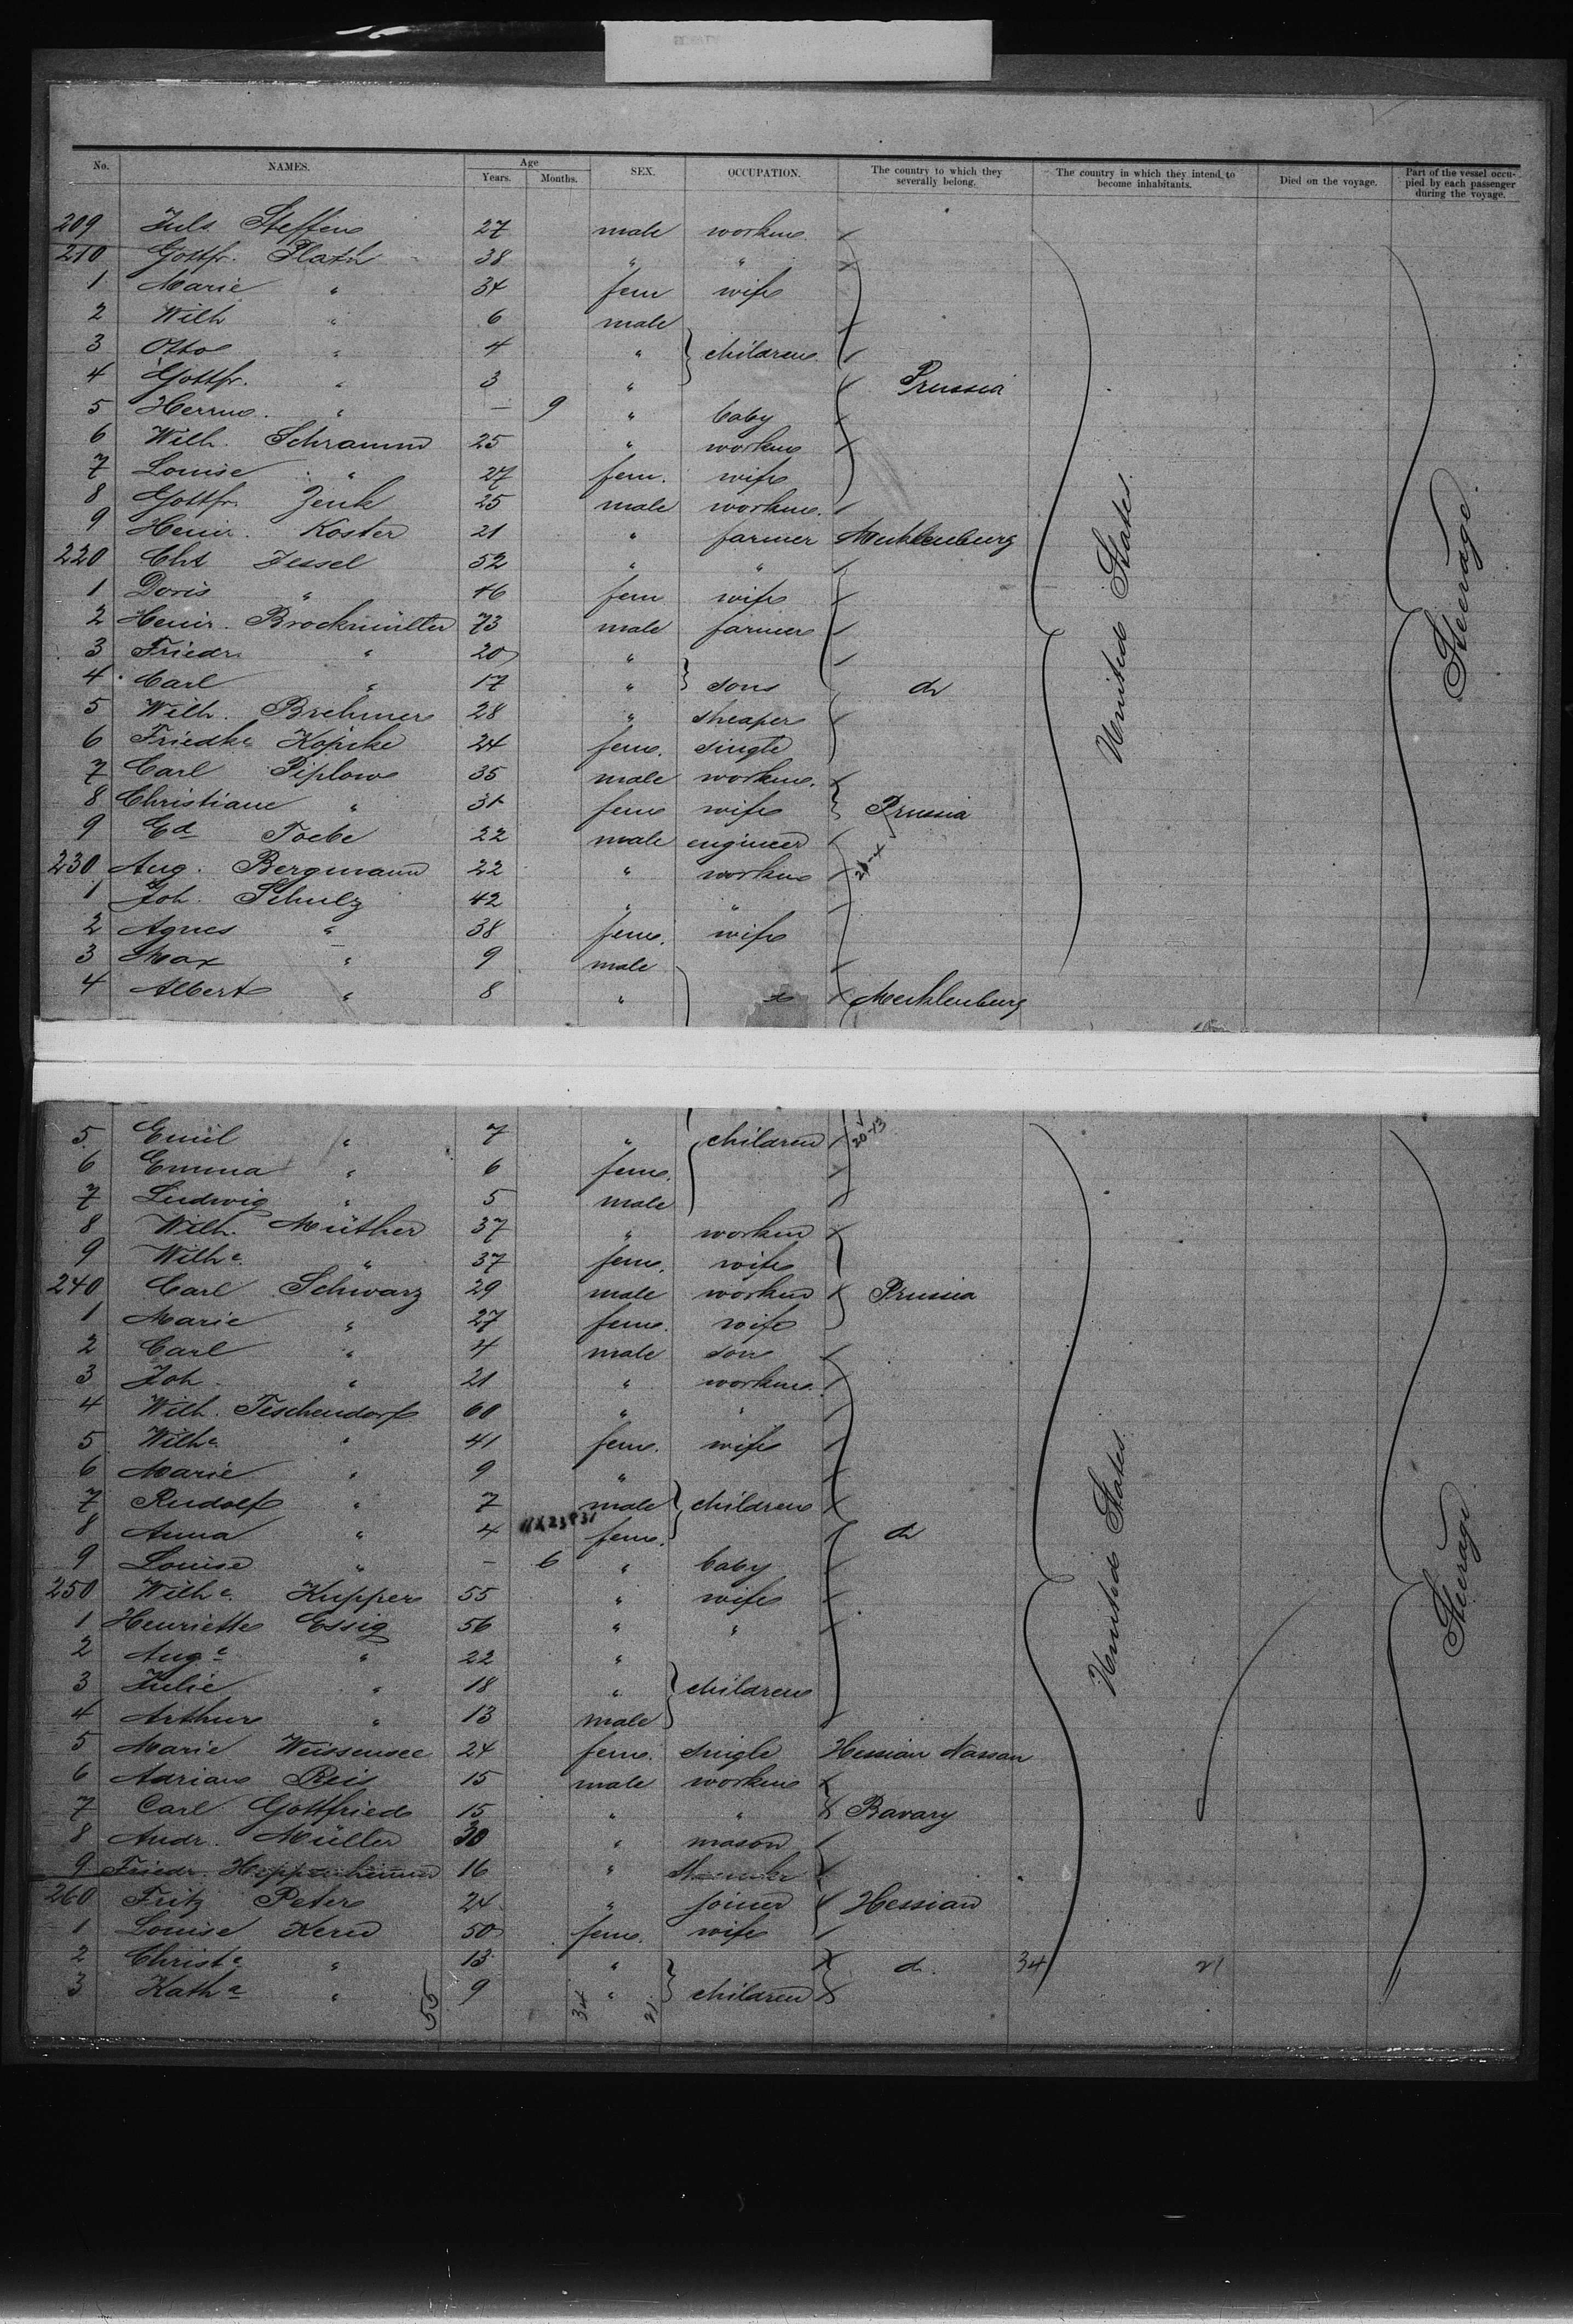 No. NAMES. Age Years. Months. SEX. OCCUPATION. The country to which they severally belong. The country in which they intend to become inhabitants. Died on the voyage. Part of the vessel occupied by each passenger during the voyage.
209 Juls Steffen 27 male workm.
210 Gottfr. Plath 38 " "
1 Marie " 34 fem wife
2 Wilh " 6 male
3 Otto " 4 " children
4 Gottfr. " 3 " Prussia
5 Herrm. " – 9 " baby
6 Wilh. Schramm 25 " workm
7 Louise " 27 fem. wife
8 Gottfr. Zenk 25 male workm.
9 Heinr. Koster 21 " farmer Mecklenburg
220 Chr Jessel 52 " "
1 Doris " 46 fem wife
2 Heinr. Brockmüller 73 male farmer
3 Friedr. " 20 "
4 Carl " 17 " sons do
5 Wilh. Brehmer 28 " sheaper
6 Friedke Köpcke 24 fem. single
7 Carl Piplow 35 male workm.
8 Christiane " 31 fem wife Prussia
9 Ed Toebe 22 male engineer
230 Aug. Bergmann 22 " workm
1 Joh. Schulz 42 " "
2 Agnes " 38 fem. wife
3 Max " 9 male
4 Albert " 8 " Mecklenburg
United States.
Steerage.
5 Emil " 7 " children
6 Emma " 6 fem.
7 Ludwig " 5 male
8 Wilh. Müther 37 " workm
9 Wilhe. " 37 fem. wife
240 Carl Schwarz 29 male workm Prussia
1 Marie " 27 fem. wife
2 Carl " 4 male son
3 Joh. " 21 " workm.
4 Wilh. Teschendorf 60 " "
5 Wilhe. " 41 fem. wife
6 Marie " 9 "
7 Rudolf " 7 male children
8 Anna " 4 fem. do
9 Louise " – 6 " baby
250 Wilhe. Kupper 55 " wife
1 Henriette Essig 56 " "
2 Auge " 22 "
3 Julie " 18 " children
4 Arthur " 13 male
5 Marie Weissensee 24 fem. single Hessian Nassau
6 Adrian Reis 15 male workm
7 Carl Gottfried 15 " " Bavary
8 Andr. Müller 30 " mason
9 Friedr. 16 "
260 Fritz Peter 24 " joiner Hessian
1 Louise Kern 50 fem. wife
2 Christe " 13 " do. 34 21
3 Kathe " 9 " children
55 34 21
United States.
Steerage